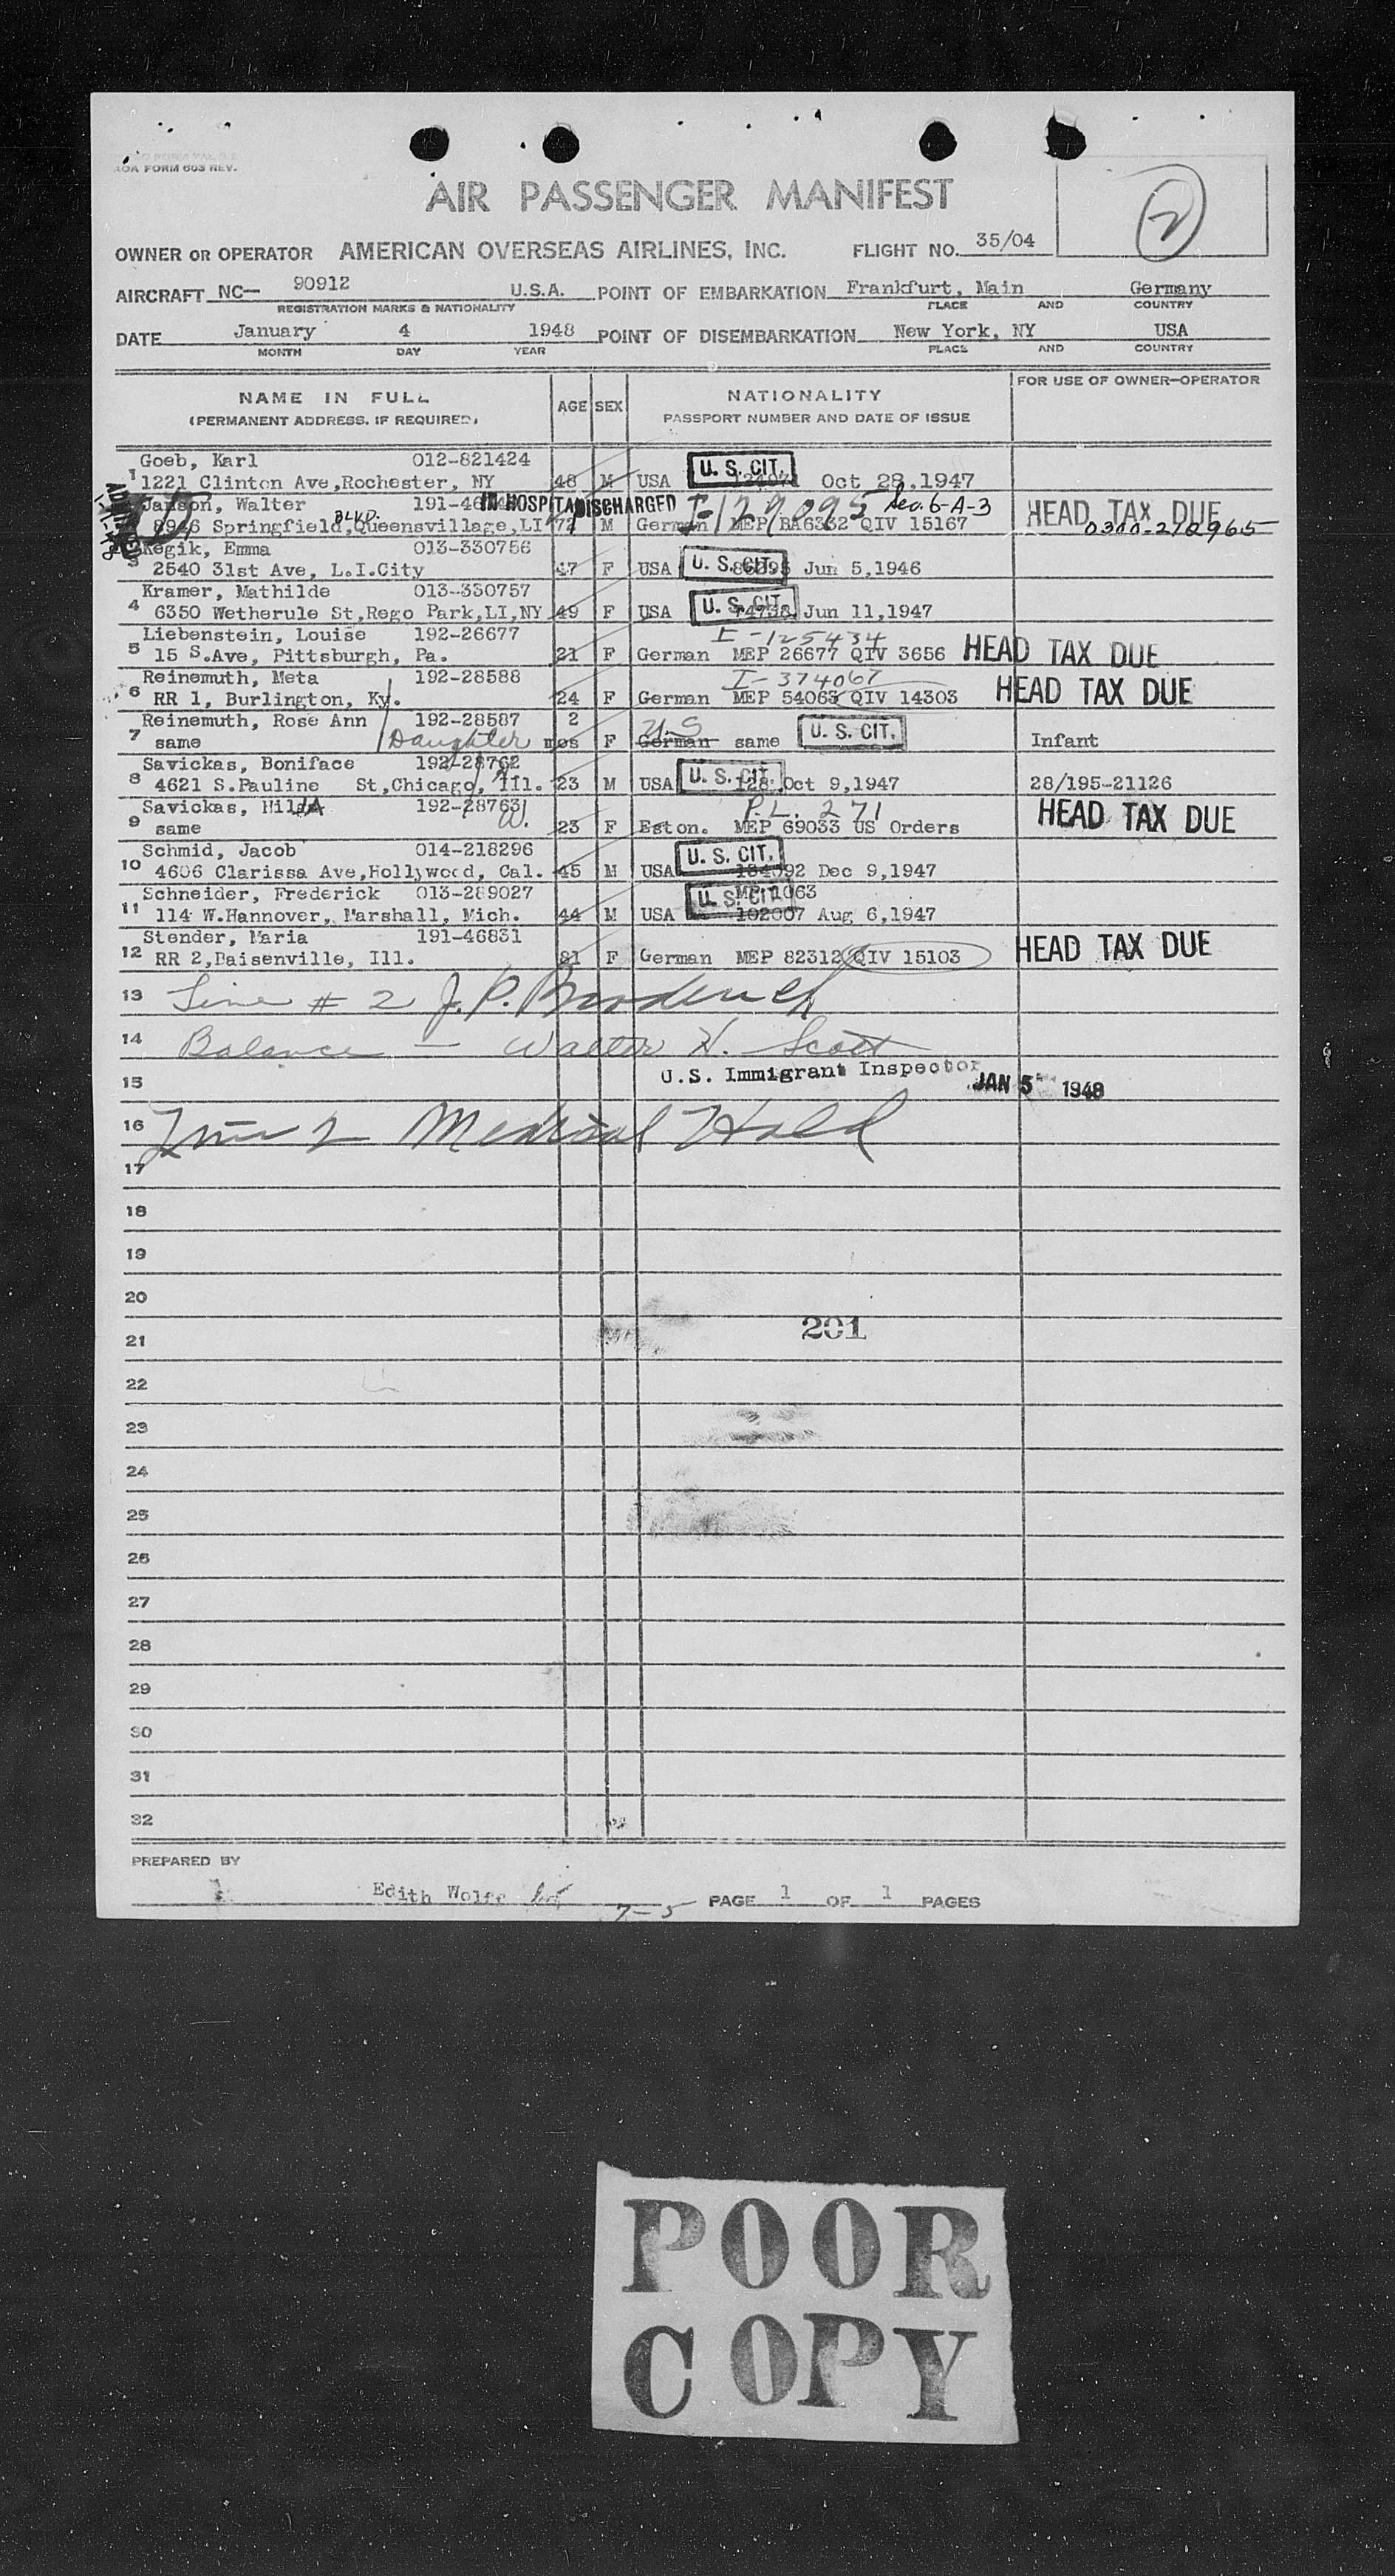 AOA FORM 603 REV.
AIR PASSENGER MANIFEST
2
OWNER OR OPERATOR AMERICAN OVERSEAS AIRLINES, INC. FLIGHT NO. 35/04
AIRCRAFT NC— 90912 U.S.A. POINT OF EMBARKATION Frankfurt, Main Germany
REGISTRATION MARKS & NATIONALITY PLACE AND COUNTRY
DATE January 4 1948 POINT OF DISEMBARKATION New York, NY USA
MONTH DAY YEAR PLACE AND COUNTRY
NAME IN FULL AGE SEX NATIONALITY FOR USE OF OWNER-OPERATOR
(PERMANENT ADDRESS, IF REQUIRED) PASSPORT NUMBER AND DATE OF ISSUE
Goeb, Karl 012-821424 U. S. CIT.
1 1221 Clinton Ave,Rochester, NY 48 M USA Oct 28,1947
Janson, Walter IN HOSPITAL DISCHARGED I-129095 Sec. 6-A-3 HEAD TAX DUE
BLVD.
8946 Springfield,Queensvillage,LI 72 M German MEP RA6332 QIV 15167 0300-210965
Kegik, Emma 013-330756
3 2540 31st Ave, L.I.City 47 F USA U. S. CIT. Jun 5,1946
Kramer, Mathilde 013-330757
4 6350 Wetherule St,Rego Park,LI,NY 49 F USA U. S. CIT. Jun 11,1947
Liebenstein, Louise 192-26677 I-125434
5 15 S.Ave, Pittsburgh, Pa. 21 F German MEP 26677 QIV 3656 HEAD TAX DUE
Reinemuth, Meta 192-28588 I-374067
6 RR 1, Burlington, Ky. 24 F German MEP 54063 QIV 14303 HEAD TAX DUE
Reinemuth, Rose Ann 192-28587 2 U.S
7 same Daughter mos F German same U. S. CIT. Infant
Savickas, Boniface 192-28762
8 4621 S.Pauline St,Chicago, Ill. 23 M USA U. S. CIT. 128 Oct 9,1947 28/195-21126
Savickas, Hilja 192-28763 W. P.L. 271
9 same 23 F Eston. MEP 69033 US Orders HEAD TAX DUE
Schmid, Jacob 014-218296 U. S. CIT.
10 4606 Clarissa Ave,Hollywood, Cal. 45 M USA Dec 9,1947
Schneider, Frederick 013-289027 U. S. CIT.
11 114 W.Hannover, Marshall, Mich. 44 M USA 102007 Aug 6,1947
Stender, Maria 191-46831
12 RR 2,Paisenville, Ill. 81 F German MEP 82312 QIV 15103 HEAD TAX DUE
13 Line # 2 J. P. Broderick
14 Balance — Walter H. Scott
U.S. Immigrant Inspector JAN 5 1948
15
16 Line 2 Medical Hold
17
18
19
20
201
21
22
23
24
25
26
27
28
29
30
31
32
PREPARED BY
Edith Wolfe PAGE 1 OF 1 PAGES
7-5
POOR
COPY